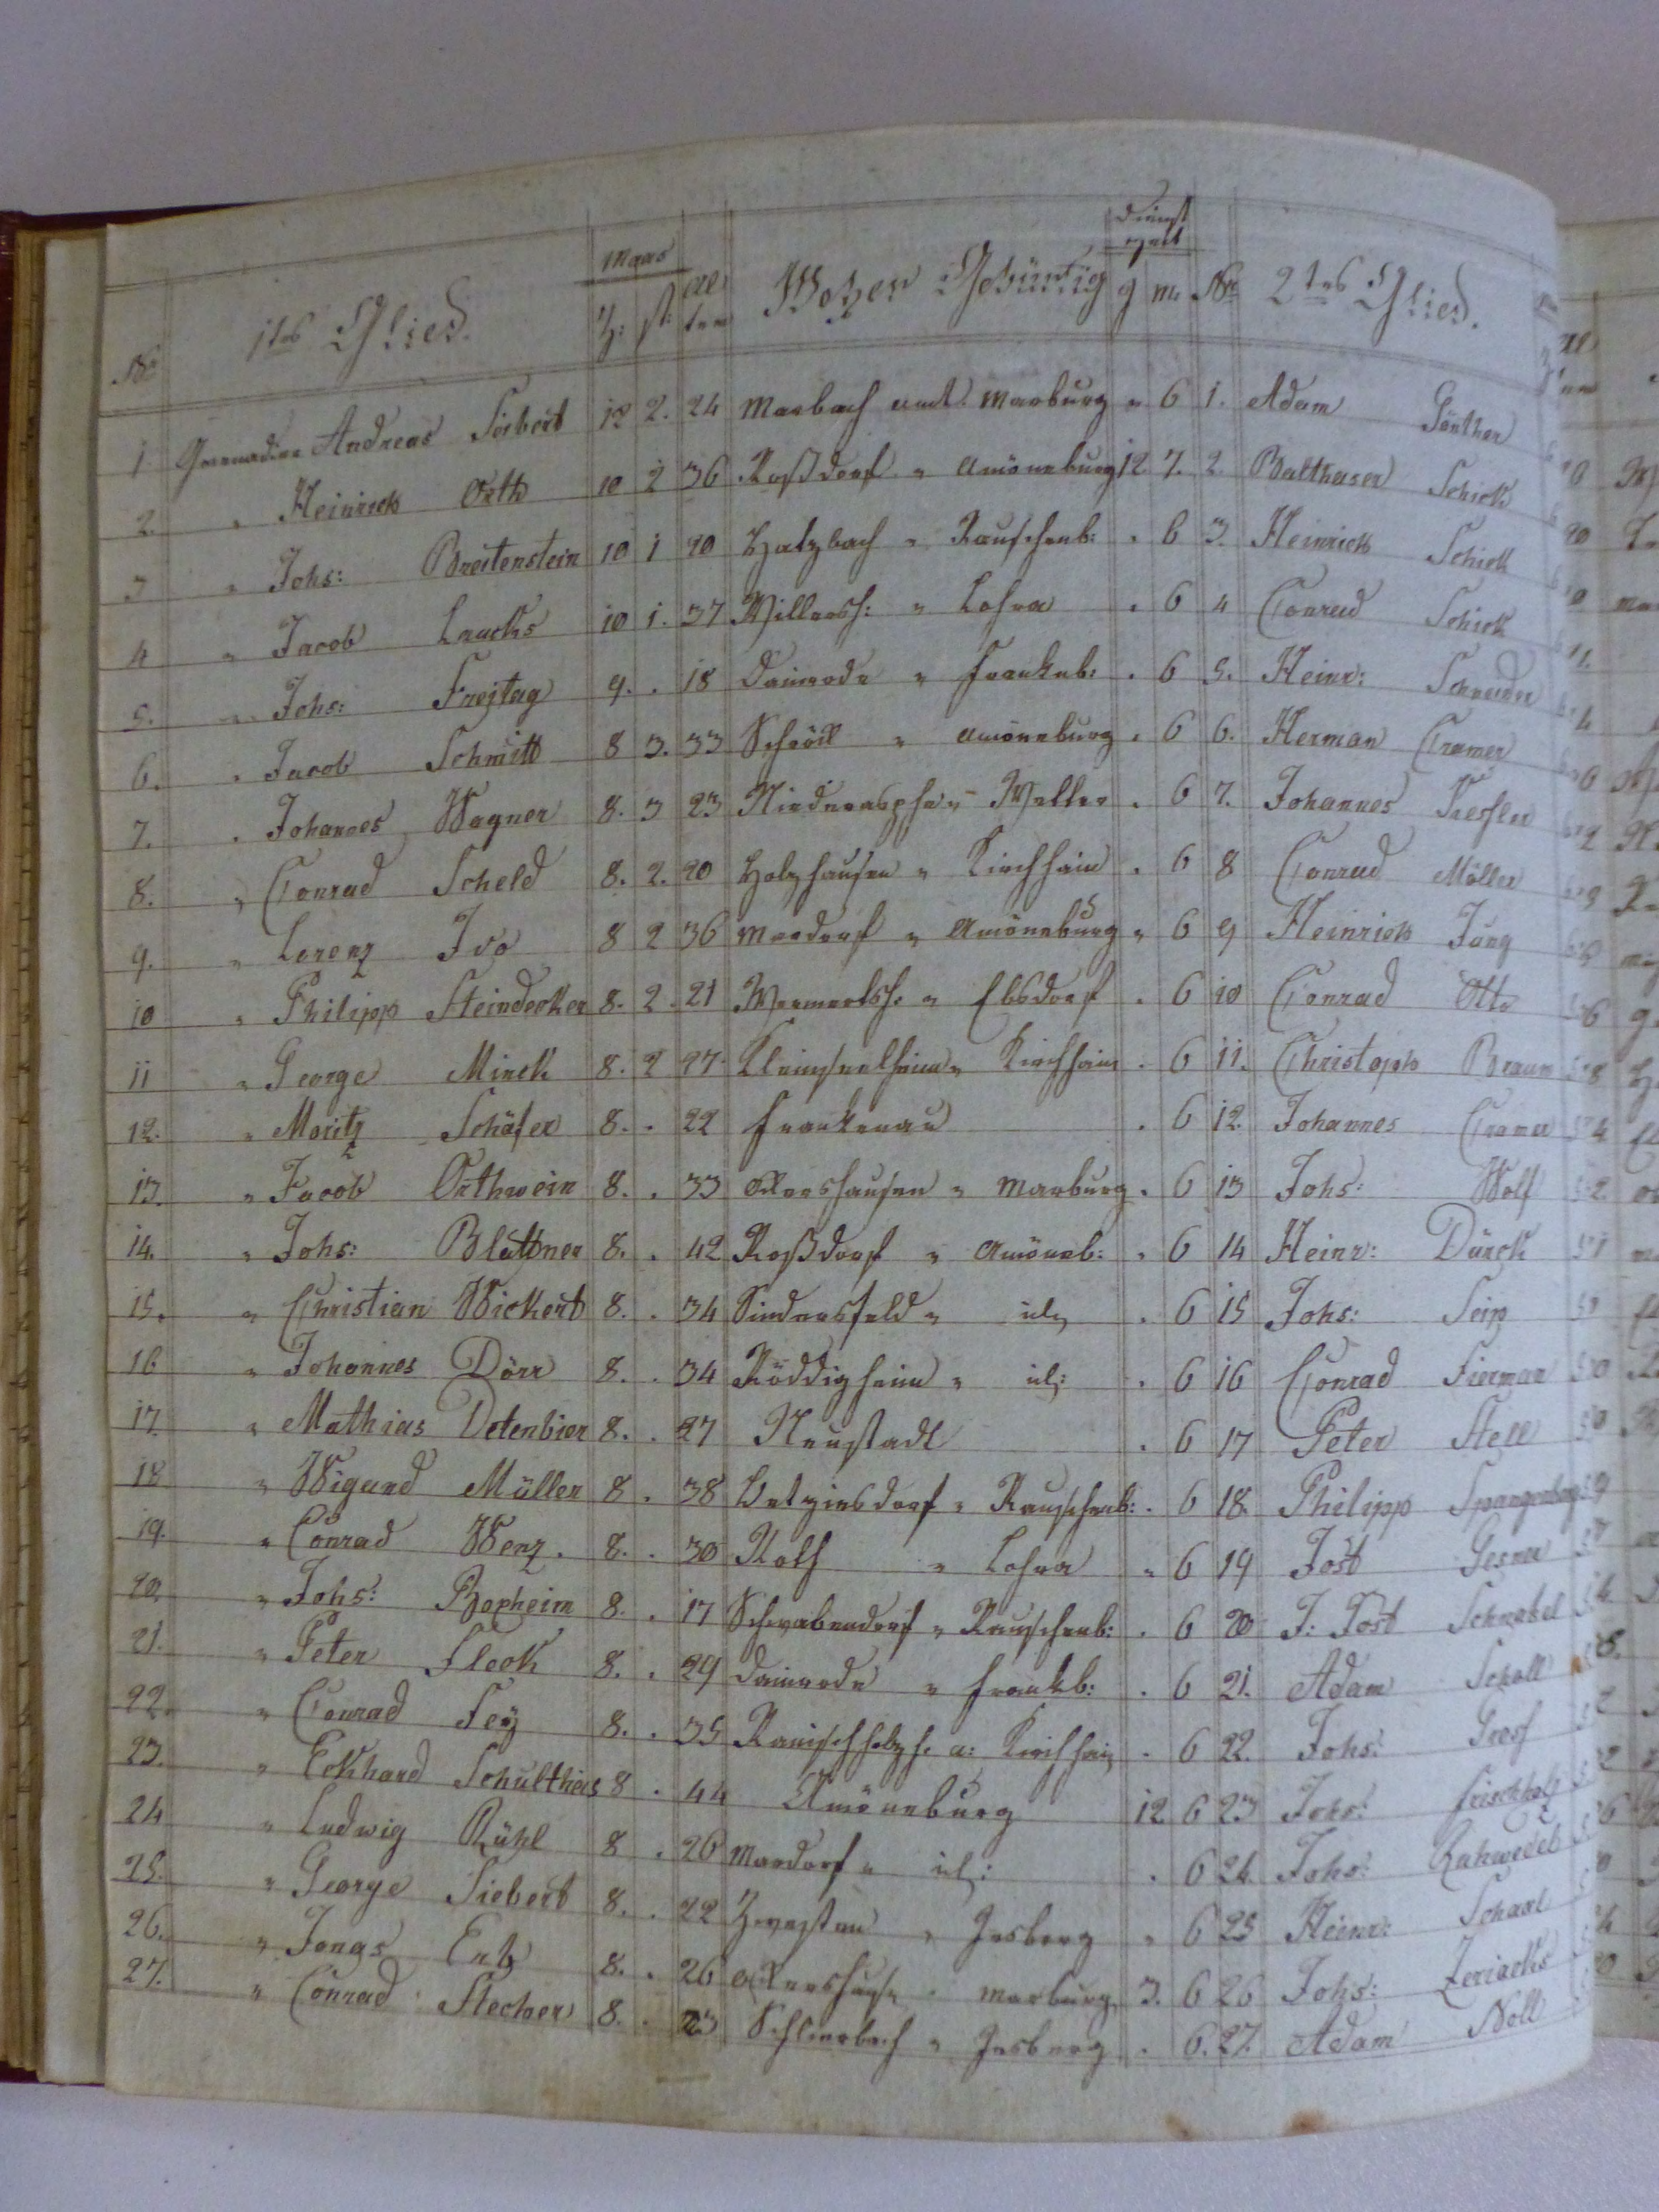 Dienst
Maas zeit
No 1tes Glied. Z: st: Alter Woher Gebürtig J m. No 2tes Glied.
1 Grenadier Andreas Seibert 10 2. 24 Marbach amt. Marburg " 6 1. Adam Günther
2. " Heinrich Orth 10 2 36 Roßdorf " Amöneburg 12 7. 2. Balthaser Schick
3 " Johs: Breitenstein 10 1 20 Hatzbach " Rauschenb: . 6 3. Heinrich Schick
4 " Jacob Laucks 10 1. 37 Willersh: " Lohra . 6 4 Conrad Schick
5. " Johs: Freÿtag 9. . 18 Dainrode " Frankenb: . 6 5. Heinr: Schneider
6. " Jacob Schmitt 8 3. 33 Schröck " Amöneburg . 6 6. Herman Cramer
7. " Johannes Wagner 8. 3 23 Niederasphe " Wetter . 6 7. Johannes
8. " Conrad Scheld 8. 2. 20 Holzhausen " Kirchhain . 6 8 Conrad Möller
9. " Lorenz Ivo 8 2 36 Mardorf " Amöneburg " 6 9 Heinrich Jung
10 " Philipp Steindecker 8. 2. 21 Wermertsh. " Ebsdorf . 6 10 Conrad Otto
11 " George Minck 8. 2 27. Kleinseelheim " Kirchhain . 6 11. Christoph Braun
12. " Moritz Schäfer 8. . 22 Frankenau . 6 12. Johannes Cramer
13. " Jacob Orthwein 8. . 33 Ockershausen " Marburg . 6 13 Johs: Wolf
14. " Johs: Blattner 8. . 42 Roßdorf " Amöneb: " 6 14 Heinr: Dürck
15. " Christian Wickert 8. . 34 Sindersfeld " id: . 6 15 Johs: Seip
16 " Johannes Dörr 8. . 34 Röddigheim " id: . 6 16 Conrad Fierman
17. " Mathias Detenbier 8. . 27 Neustadt . 6 17 Peter Stell
18 " Wigand Müller 8 . 38 Betziesdorf " Rauschenb: . 6 18. Philipp Spangenberg
19. " Conrad Wenz. 8. . 30 Roth " Lohra " 6 19 Jost Gesner
20. " Johs: Bopheim 8. . 17 Schwabendorf " Rauschenb: . 6 20 J: Jost Schnabel
21. " Peter Fleck 8. . 29 Dainrode " Frankb: . 6 21. Adam Scholl
22. " Conrad Feÿ 8. . 35 Rauischholzh. a: Kirchhain . 6 22. Johs: Greif
23. " Eckhard Schultheis 8 . 44 Amöneburg 12 6 23 Johs:
24 " Ludwig Rühl 8 . 26 Mardorf " id: . 6 24. Johs:
25. " George Siebert 8. . 22 Zwesten " Jesberg " 6 25 Heinr:
26. " Jonas 8. . 26 Ockershause " Marburg 3. 6 26 Johs:
27. " Conrad Stecher 8. . 23 Schlierbach " Jesberg . 6. 27. Adam Noll